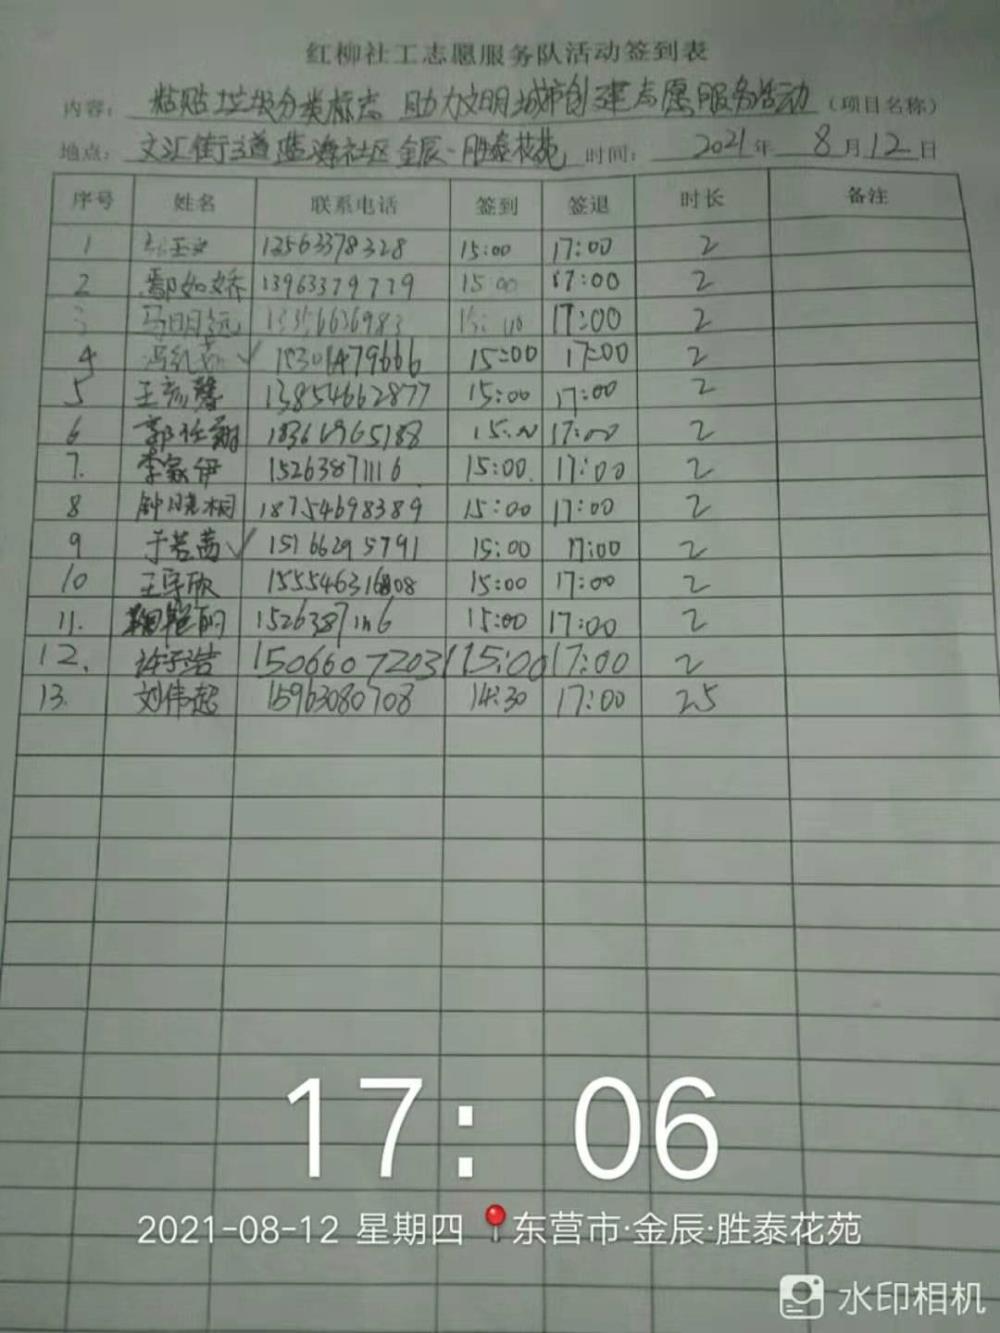 红柳社工志愿服务队活动签到表
内容：粘贴垃圾分类标志 助力文明城市创建志愿服务活动（项目名称）
地点：文汇街道蓝海社区金辰·胜泰花苑 时间：2021年8月12日
序号 姓名 联系电话 签到 签退 时长 备注
1 13563378328 15:00 17:00 2
2 鄢如娇 13963379779 15:00 17:00 2
3 马明远 15:00 17:00 2
4 ✓ 15301479666 15:00 17:00 2
5 王彦馨 13854662877 15:00 17:00 2
6 郭任翔 18361965188 15:00 17:00 2
7. 李家伊 15263871116 15:00 17:00 2
8 钟晓桐 18754698389 15:00 17:00 2
9 于若茜✓ 15166295791 15:00 17:00 2
10 王宇欣 15:00 17:00 2
11. 15263871116 15:00 17:00 2
12. 许子浩 15066072031 15:00 17:00 2
13. 刘伟超 15963080708 14:30 17:00 2.5
17: 06
2021-08-12 星期四 东营市·金辰·胜泰花苑
水印相机